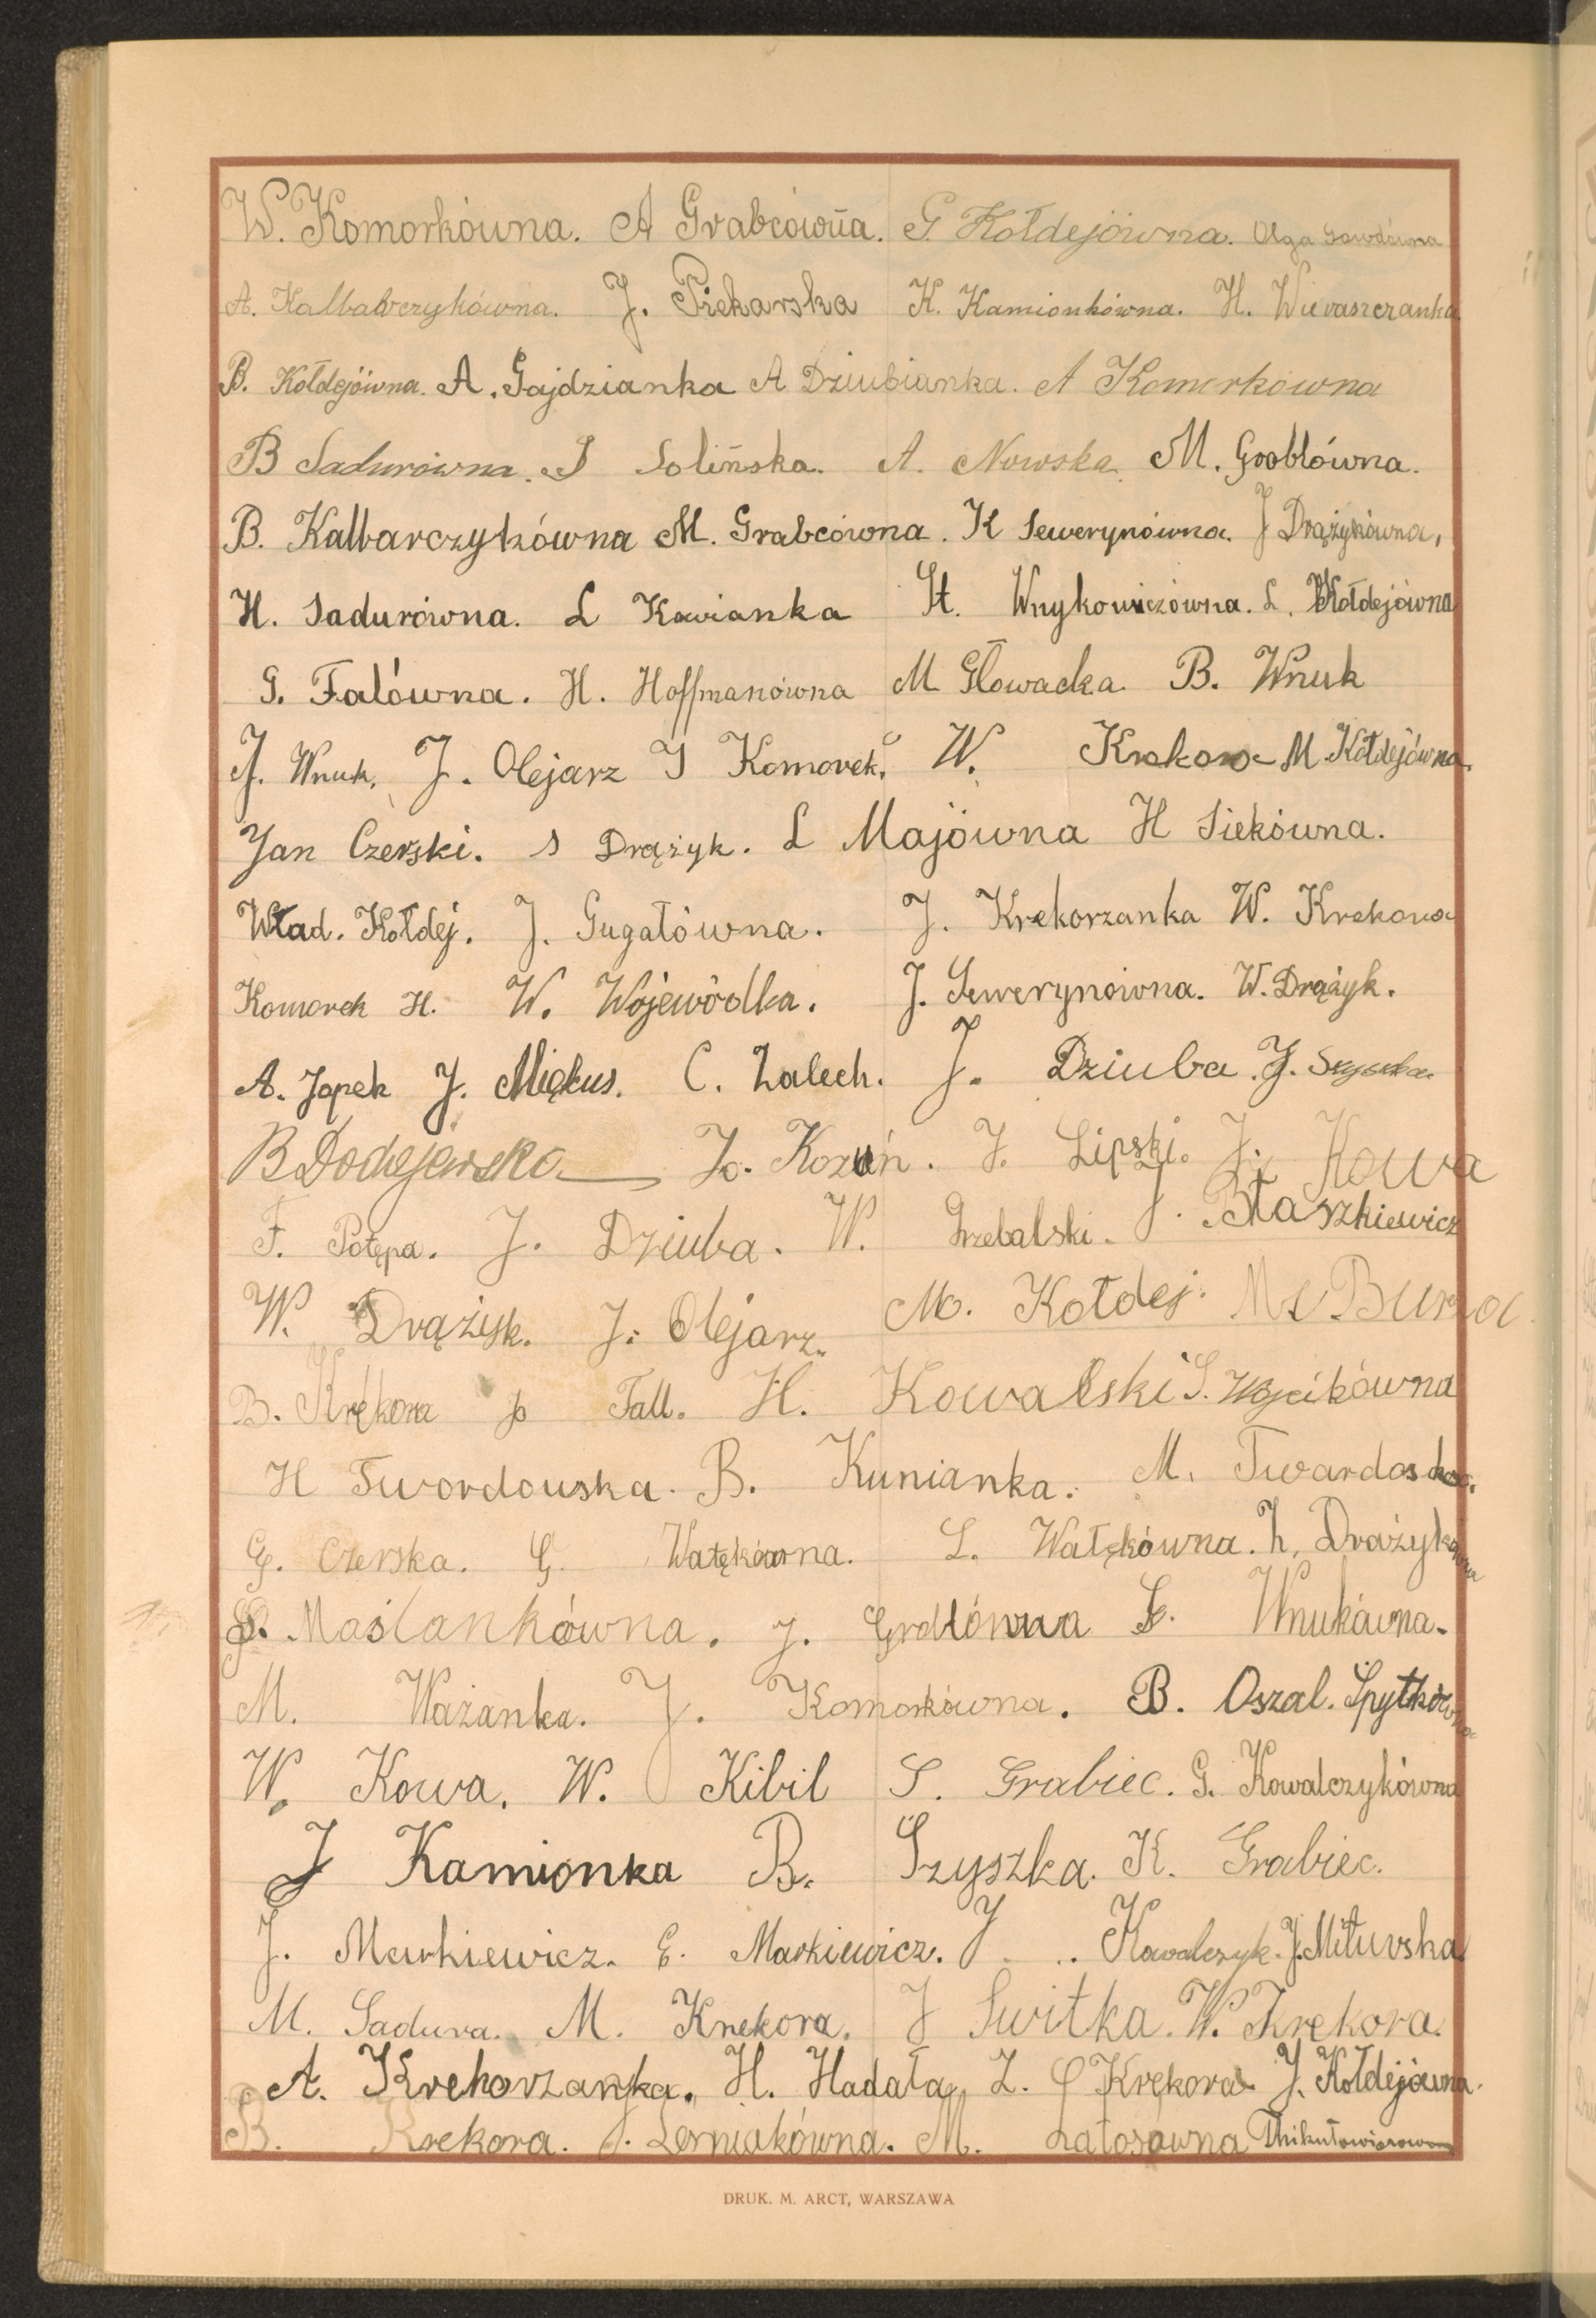 W. Komorkówna. A Grabcówna. G. Kołdejówna. Olga Gawdówna
A. Kalbarczykówna. J. Piekarska K. Kamionkówna. H. Wieraszczanka
B. Kołdejówna. A. Gajdzianka A Dziubianka. A Komorkówna
B Sadurówna. J Solińska. A. Nowska. M. Groblówna.
B. Kalbarczykówna M. Grabcówna. K Sewerynówna. J Drążykówna,
H. Sadurówna. L Kowianka St. Wnykowiczówna. L. Kołdejówna
G. Falówna. H. Hoffmanówna M Głowacka. B. Wnuk
J. Wnuk. J. Olejarz J Komorek. W. Krekora M. Kołdejówna.
Jan Czerski. S Drążyk. L Majówna H Siekówna.
Wład. Kołdej. J. Gugałówna. J. Krekorzanka W. Krekora
Komorek H. W. Wojewódka. J. Sewerynówna. W. Drążyk.
A. Jopek J. Miękus. C. Zalech. J. Dziuba. J. Szyszka.
B Dodejewska Jo. Kozuń. J. Lipski. J. Kowa
F. Potępa. J. Dziuba. W. Grzebalski. J. Błaszkiewicz
W. Drążyk. J. Olejarz. M. Kołdej. M. Bura
B. Krękora Jo Fall. H. Kowalski S. Wójcikówna
H Twordowska. B. Kunianka. M. Twardoska.
G. Czerska. G. Watękówna. L. Wałękówna. Z. Drążykówna
J. Maślankówna. J. Grdłówna S. Wnukówna.
M. Ważanka. J. Komorkówna. B. Oszal. Spytkówna
W. Kowa. W. Kibil S. Grabiec. G. Kowalczykówna
J Kamionka B. Szyszka. K. Grabiec.
J. Markiewicz. E. Markiewicz. J. Kowalczyk. J. Miturska
M. Sadura. M. Krekora. J Switka. W. Krekora.
A. Krekorzanka. H. Hadała, Z. Krękora J. Kołdejówna.
B. Krekora. J. Lerniakówna. M. Latosówna
DRUK. M. ARCT, WARSZAWA